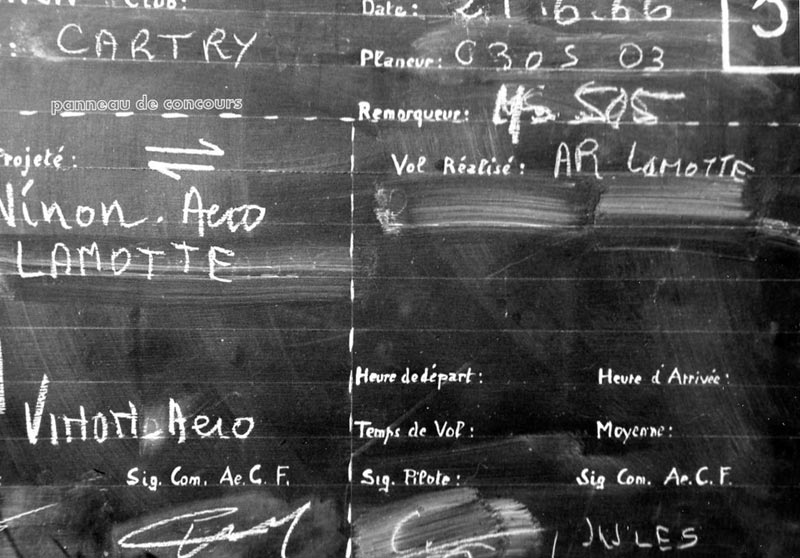 Club:
: CARTRY
panneau de concours
Projeté:
Vinon. Aero
LAMOTTE
Vinon. Aero
Sig. Com. Ae. C. F.
Date: 21.6.66 5
Planeur: 0305 03
Remorqueur: MS. 505
Vol Réalisé: AR LAMOTTE
Heure de départ: Heure d'Arrivée:
Temps de Vol: Moyenne:
Sig. Pilote: Sig Com. Ae. C. F.
JULES